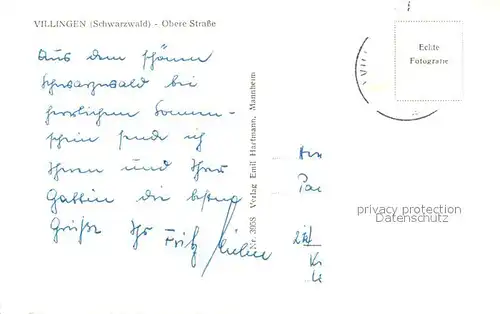 VILLINGEN (Schwarzwald) - Obere Straße
Aus dem schönen
Schwarzwald bei
herrlichem Sonnen-
schein sende ich
Ihnen und Ihrer
Gattin die besten
Grüße Ihr Fritz
Nr. 3058 Verlag Emil Hartmann, Mannheim
Echte
Fotografie
privacy protection
Datenschutz